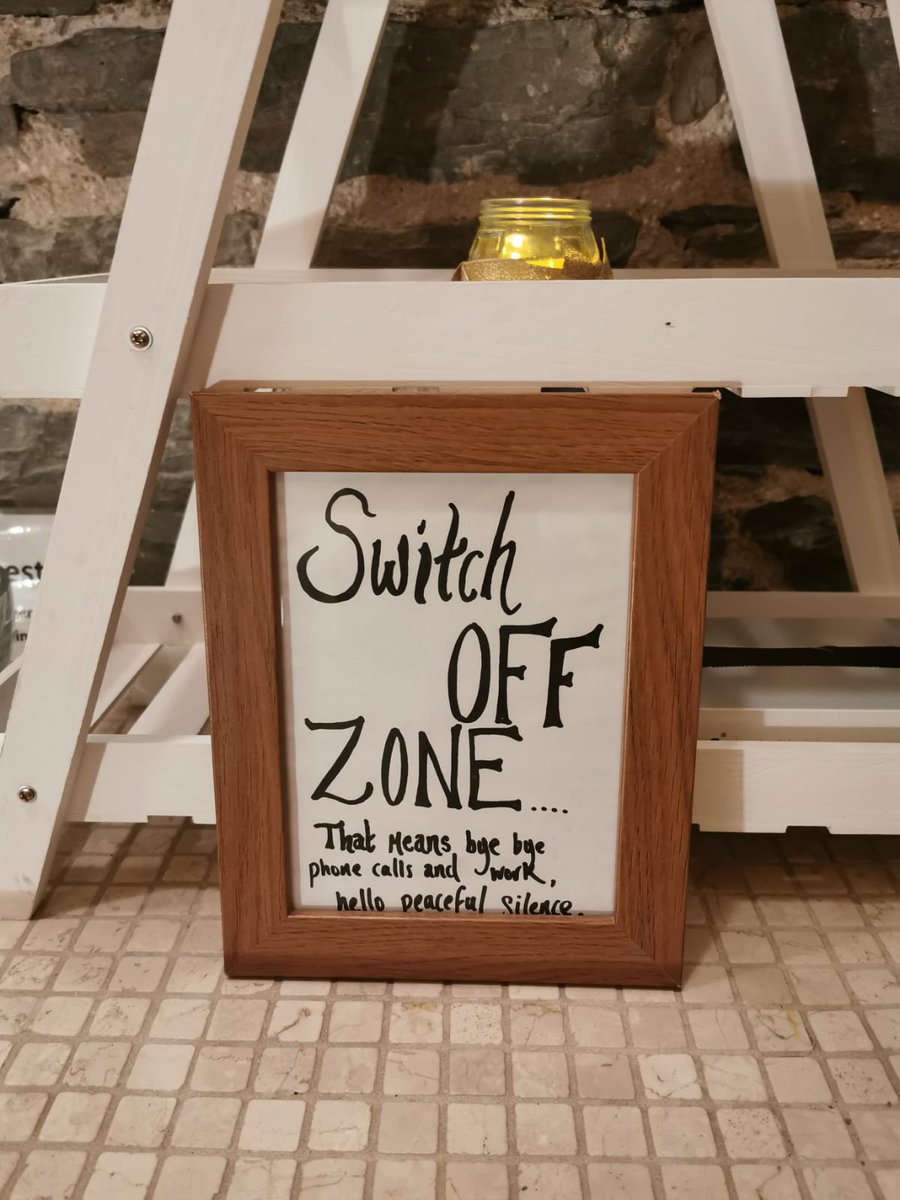 Switch
OFF
ZONE....
That Means bye bye
phone calls and work,
hello peaceful silence.
est